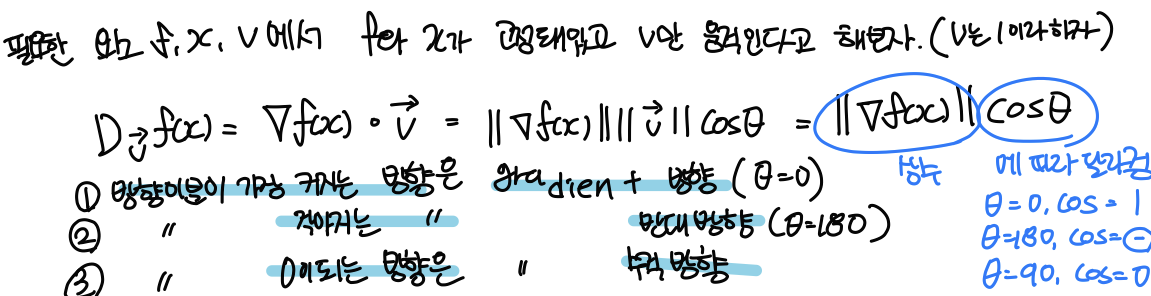 필요한 요소 f, x, v 에서 f와 x가 고정돼있고 v만 움직인다고 해보자. (v는 1이라하자)
D_{\vec{v}} f(x) = ∇f(x) • \vec{v} = ||∇f(x)|| ||\vec{v}|| cosθ = ||∇f(x)|| cosθ
상수 에 따라 달라짐
① 방향미분이 가장 커지는 방향은 gradient 방향 (θ=0)
θ=0, cos = 1
② " 작아지는 " 반대방향 (θ=180)
θ=180, cos=-
③ " 0이되는 방향은 " 수직 방향
θ=90, cos=0